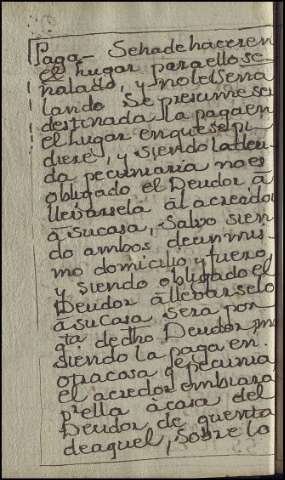 Paga - Se ha de hacer en
el lugar para ello se
ñalado, y no le Seña
lando Se presume ser
destinada la paga en
el lugar en que se pi
diere, y siendo la deu
da pecuniaria no es
obligado el Deudor â
llevarsela âl acreedor
â su casa, Salvo sien
do ambos de un mis
mo domicilio y fuero
y siendo obligado el
Deudor â llebarselo
â su Casa sera por
qta de dho Deudor, mo
siendo la paga en
otra cosa q pecunia
el acredor embiara
pr ella â casa del
Deudor de quenta
de aquel, sobre lo